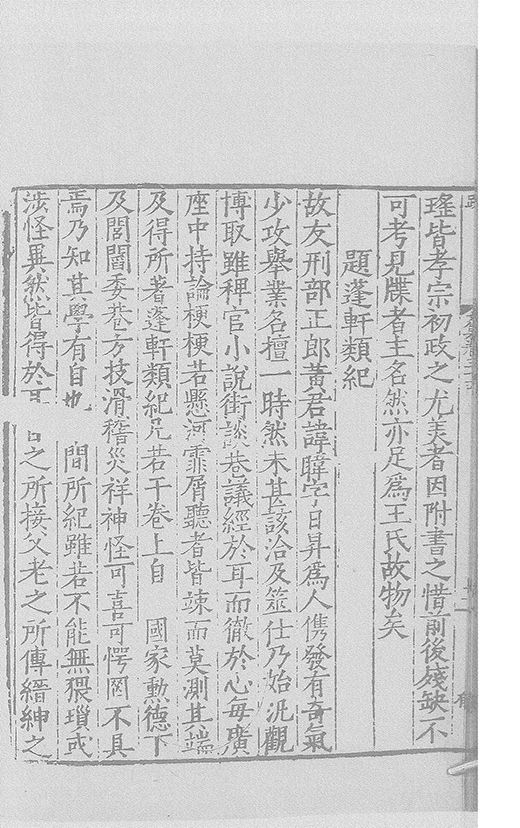 瑤皆孝宗初政之尤美者因附書之惜前後殘缺不
可考見牒者主名然亦足爲王氏故物矣
題蓬軒類紀
故友刑部正郎黃君諱暐字日昇爲人儁發有奇氣
少攻舉業名擅一時然未甚該洽及筮仕乃始汎觀
博取雖稗官小說街談巷議經於耳而徹於心每廣
座中持論梗梗若懸河霏屑聽者皆竦而莫測其端
及得所著蓬軒類紀凡若干卷上自 國家勳德下
及閭閻委巷方技滑稽災祥神怪可喜可愕罔不具
焉乃知其學有自也 間所紀雖若不能無猥瑣或
涉怪異然皆得於耳目之所接父老之所傳縉紳之